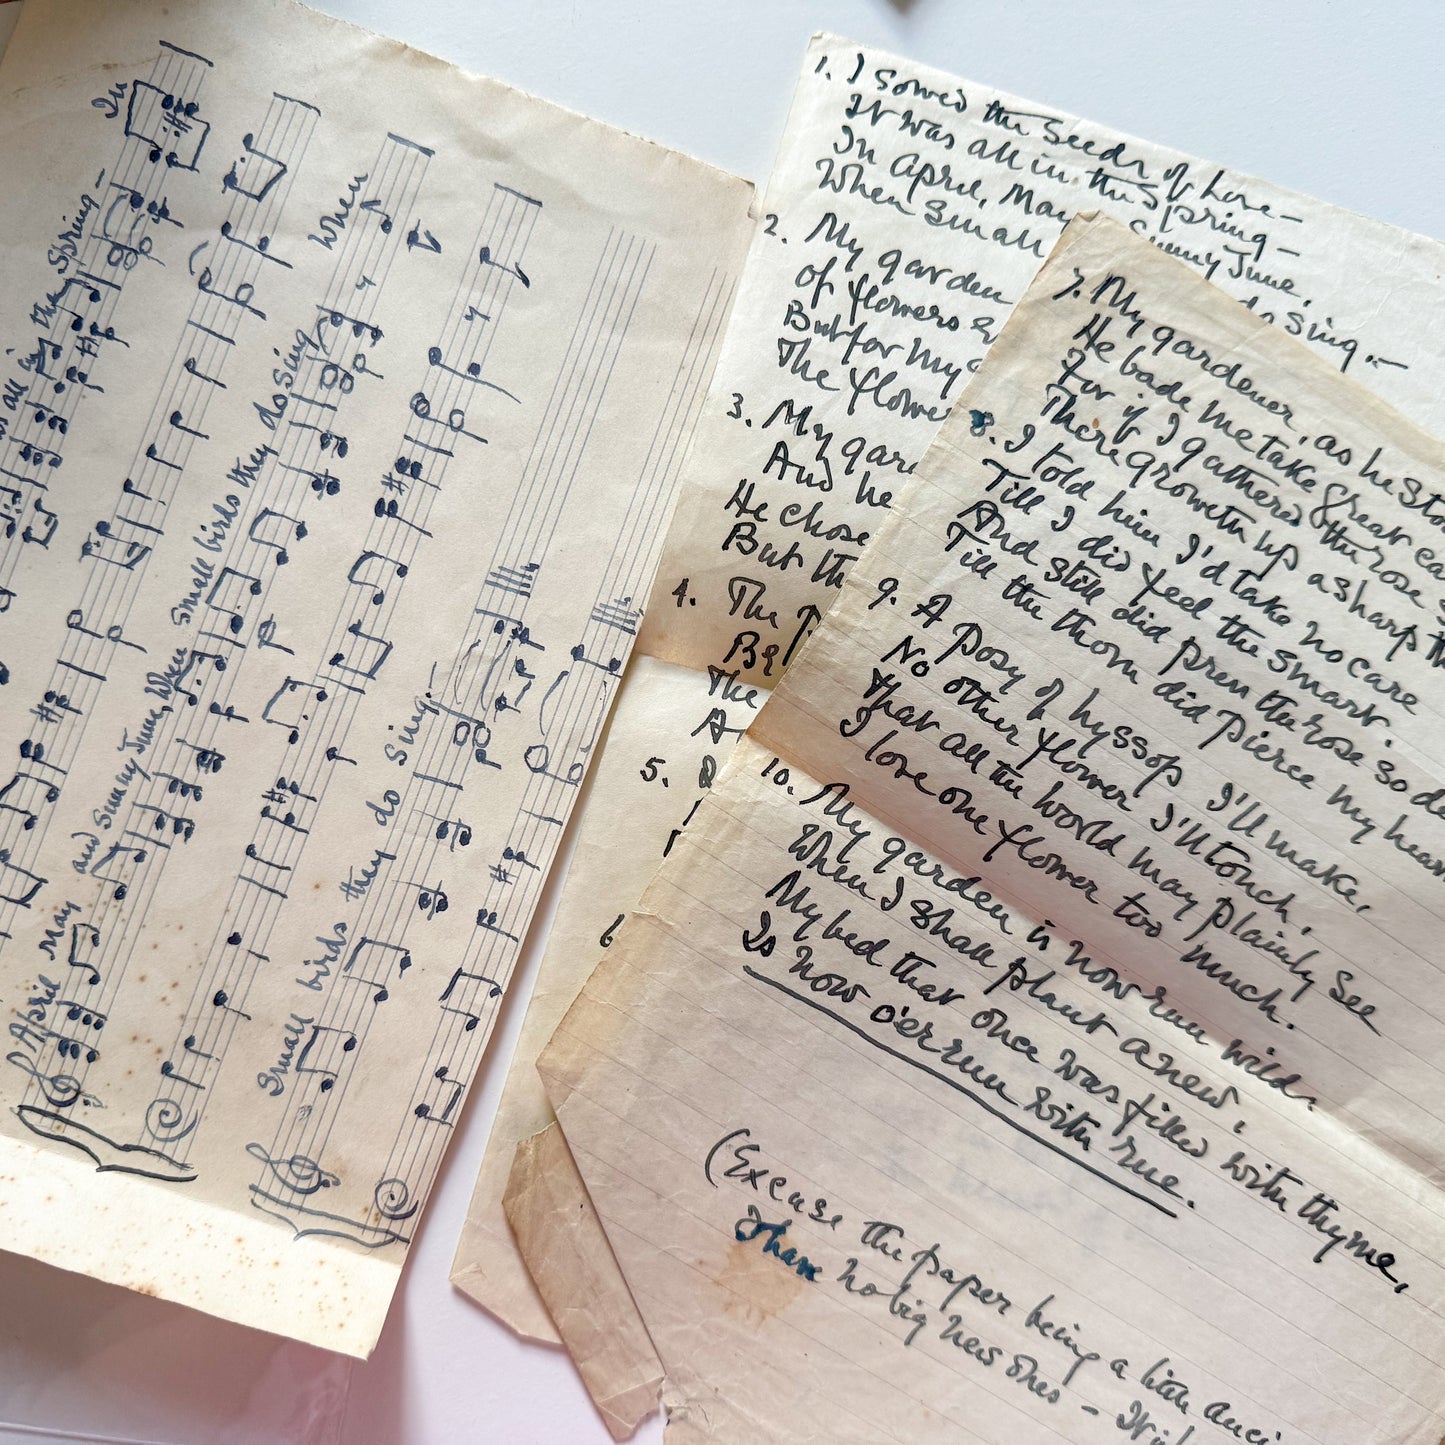 In
as all in the Spring –
April May and Sunny June, When small birds they do sing
When
Small birds they do sing.
1. I sowed the Seeds of Love –
It was all in the Spring –
In April, May Sunny June,
When Small do Sing. –
2. My garden
of flowers
But for my
The flower
3. My gar
And he
He chose
But th
4. The p
By
The
A
5.
6
7. My gardener, as he sto
He bade me take great ca
For if I gathered the rose
There groweth up a sharp th
8. I told him I'd take no care
Till I did feel the smart.
And still did pren the rose so de
Till the thorn did pierce my heart
9. A posy of hyssop I'll make,
No other flower I'll touch.
That all the world may plainly see
I love one flower too much.
10. My garden is now run wild.
When I shall plant anew,
My bed that once was filled with thyme,
Is now o'errun with rue.
(Excuse the paper being a little anci
I have no big new ones –